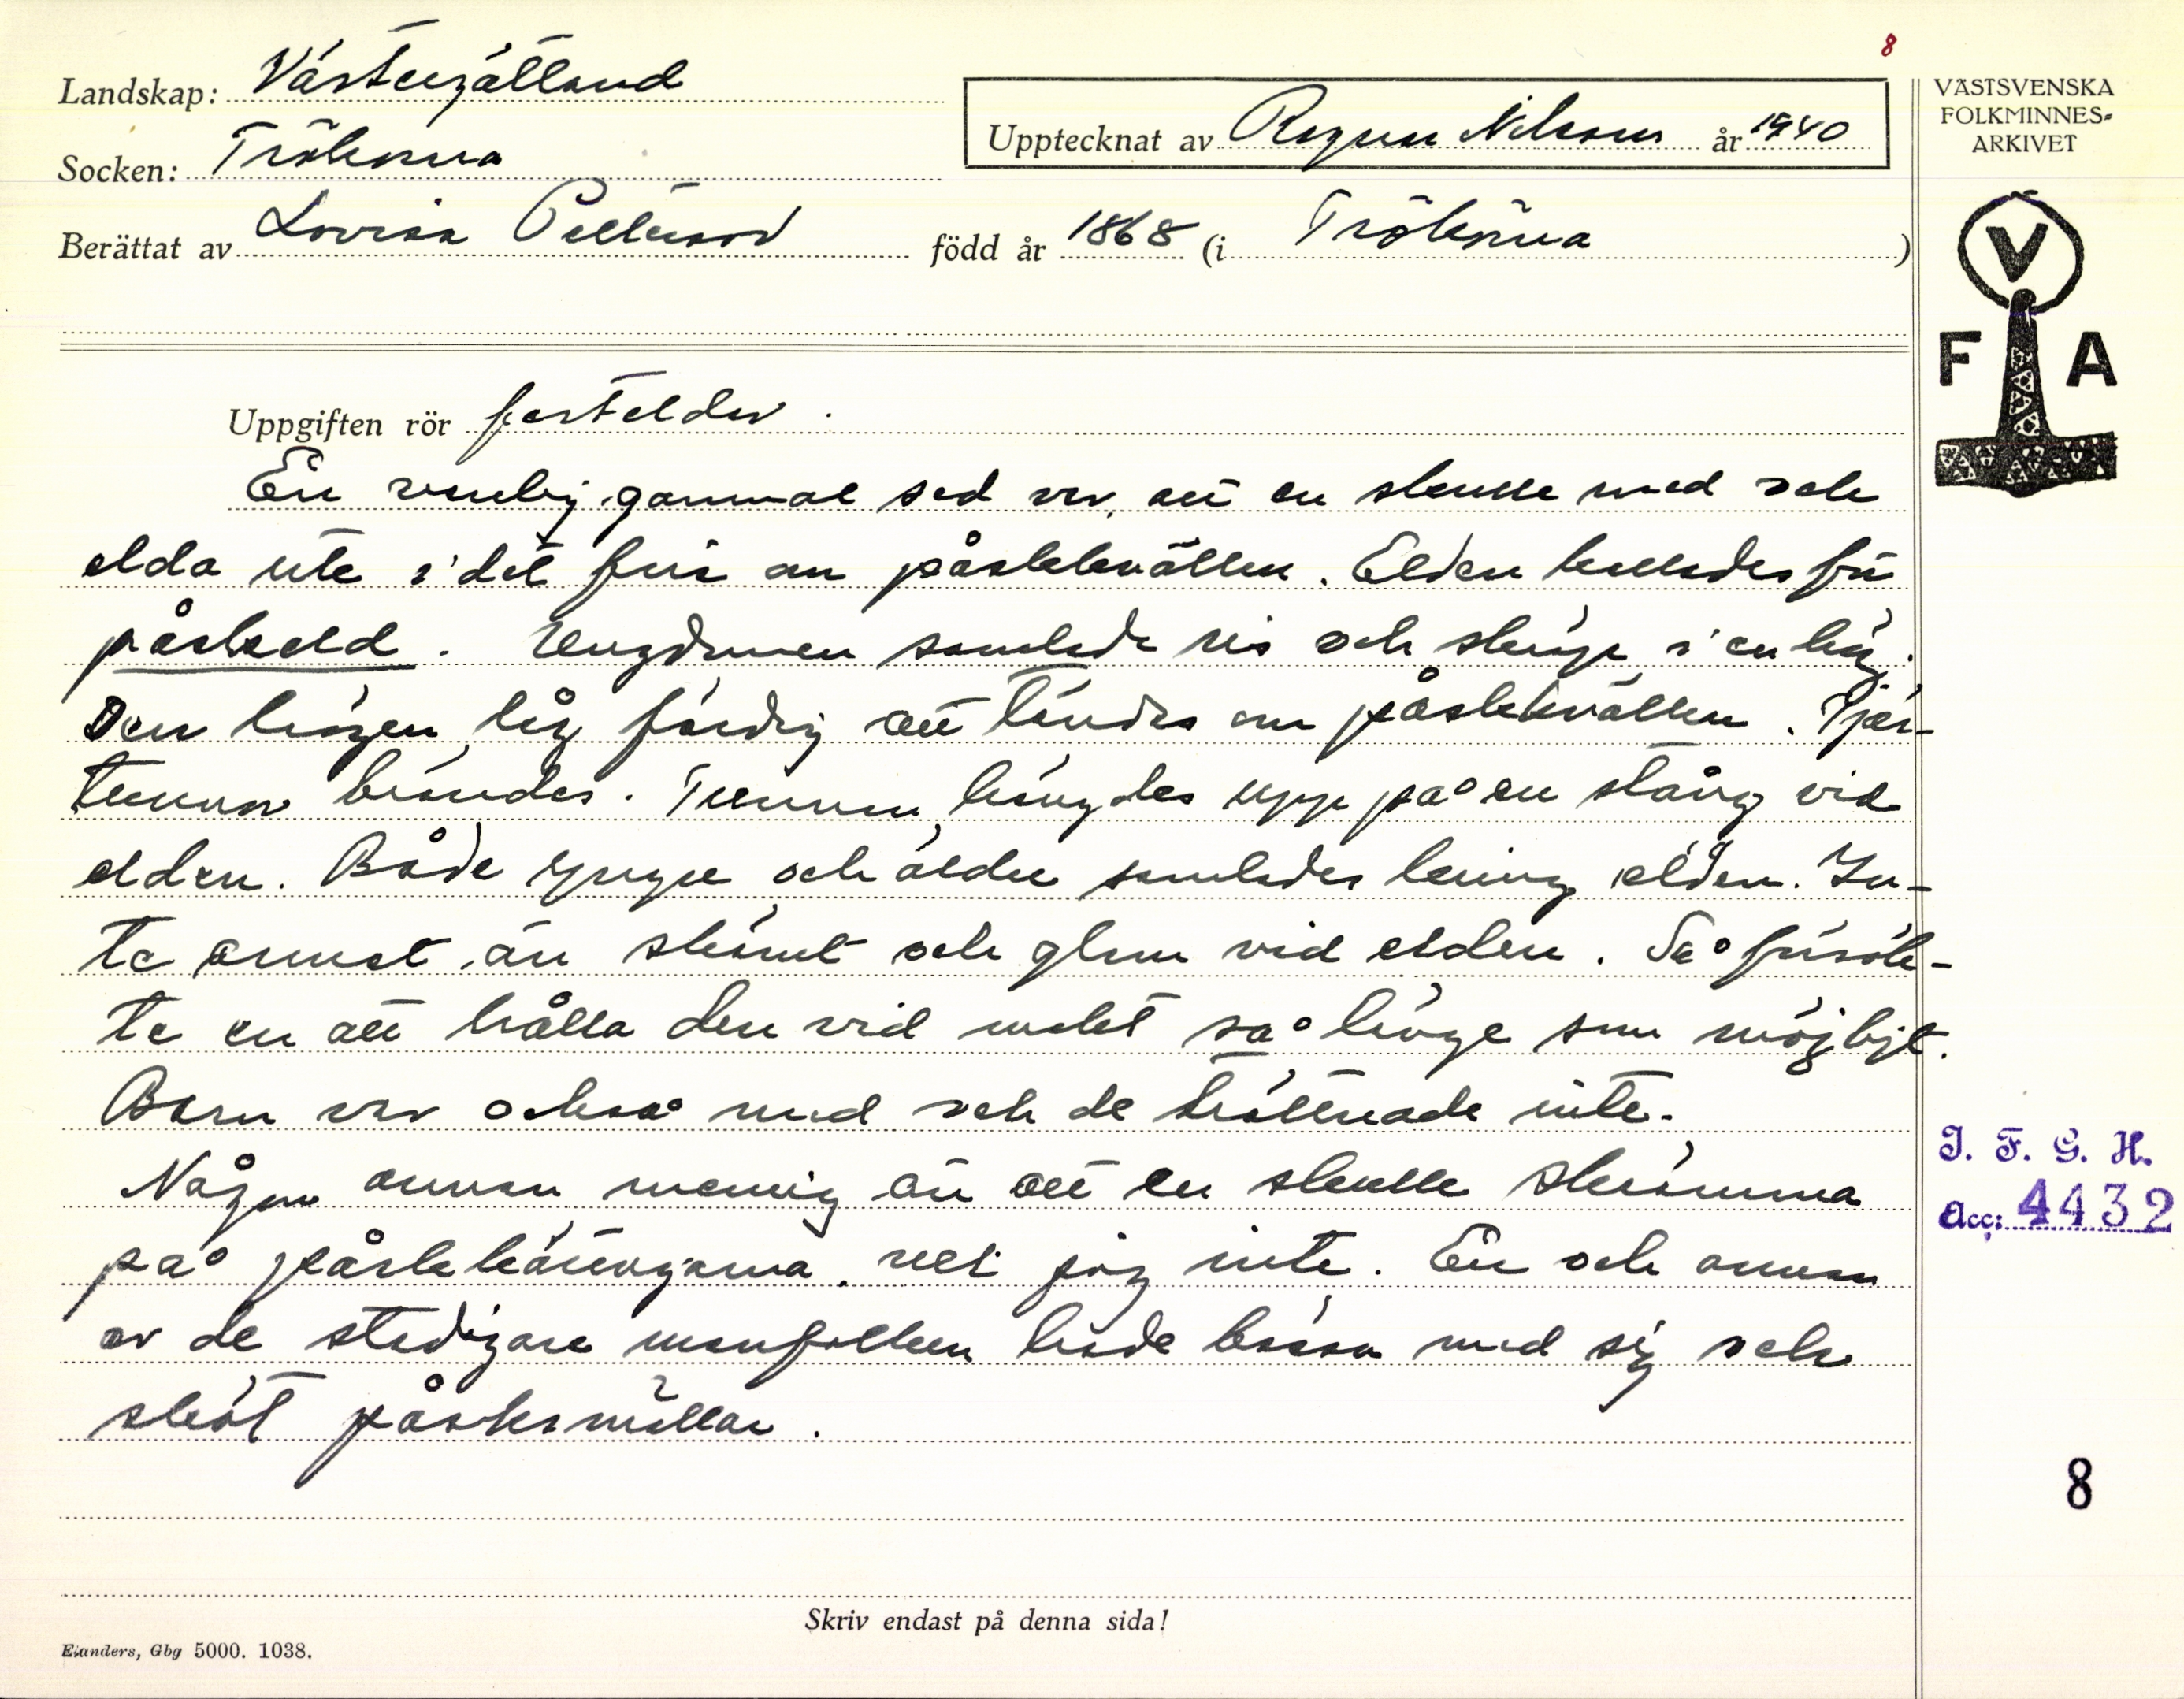 8
Landskap: Västergötland
Socken: Trökörna
Upptecknat av Ragnar Nilsson år 1940
Berättat av Lovisa Pettersson född år 1868 (i Trökörna)
VÄSTSVENSKA
FOLKMINNES=
ARKIVET
V
F A
Uppgiften rör festeldar.
En vanlig gammal sed var att en skulle med och
elda ute i det fria om påskkvällen. Elden kallades för
påskeld. Ungdomen samlade ris och slängde i en hög.
Den högen låg färdig att tändas om påskkvällen. Tjär-
tunnor brändes. Tunnan hängdes upp på en stång vid
elden. Både yngre och äldre samlades kring elden. In-
te annat än skämt och glam vid elden. Så försök-
te en att hålla den vid makt så länge som möjligt.
Barn var också med och de tröttnade inte.
Någon annan mening än att en skulle skrämma
på påskkäringarna vet jag inte. En och annan
av de stadigare manfolken hade bössa med sig och
sköt påsksmällar.
J. F. G. H.
Acc: 4432
8
Skriv endast på denna sida!
Elanders, Gbg 5000. 1038.